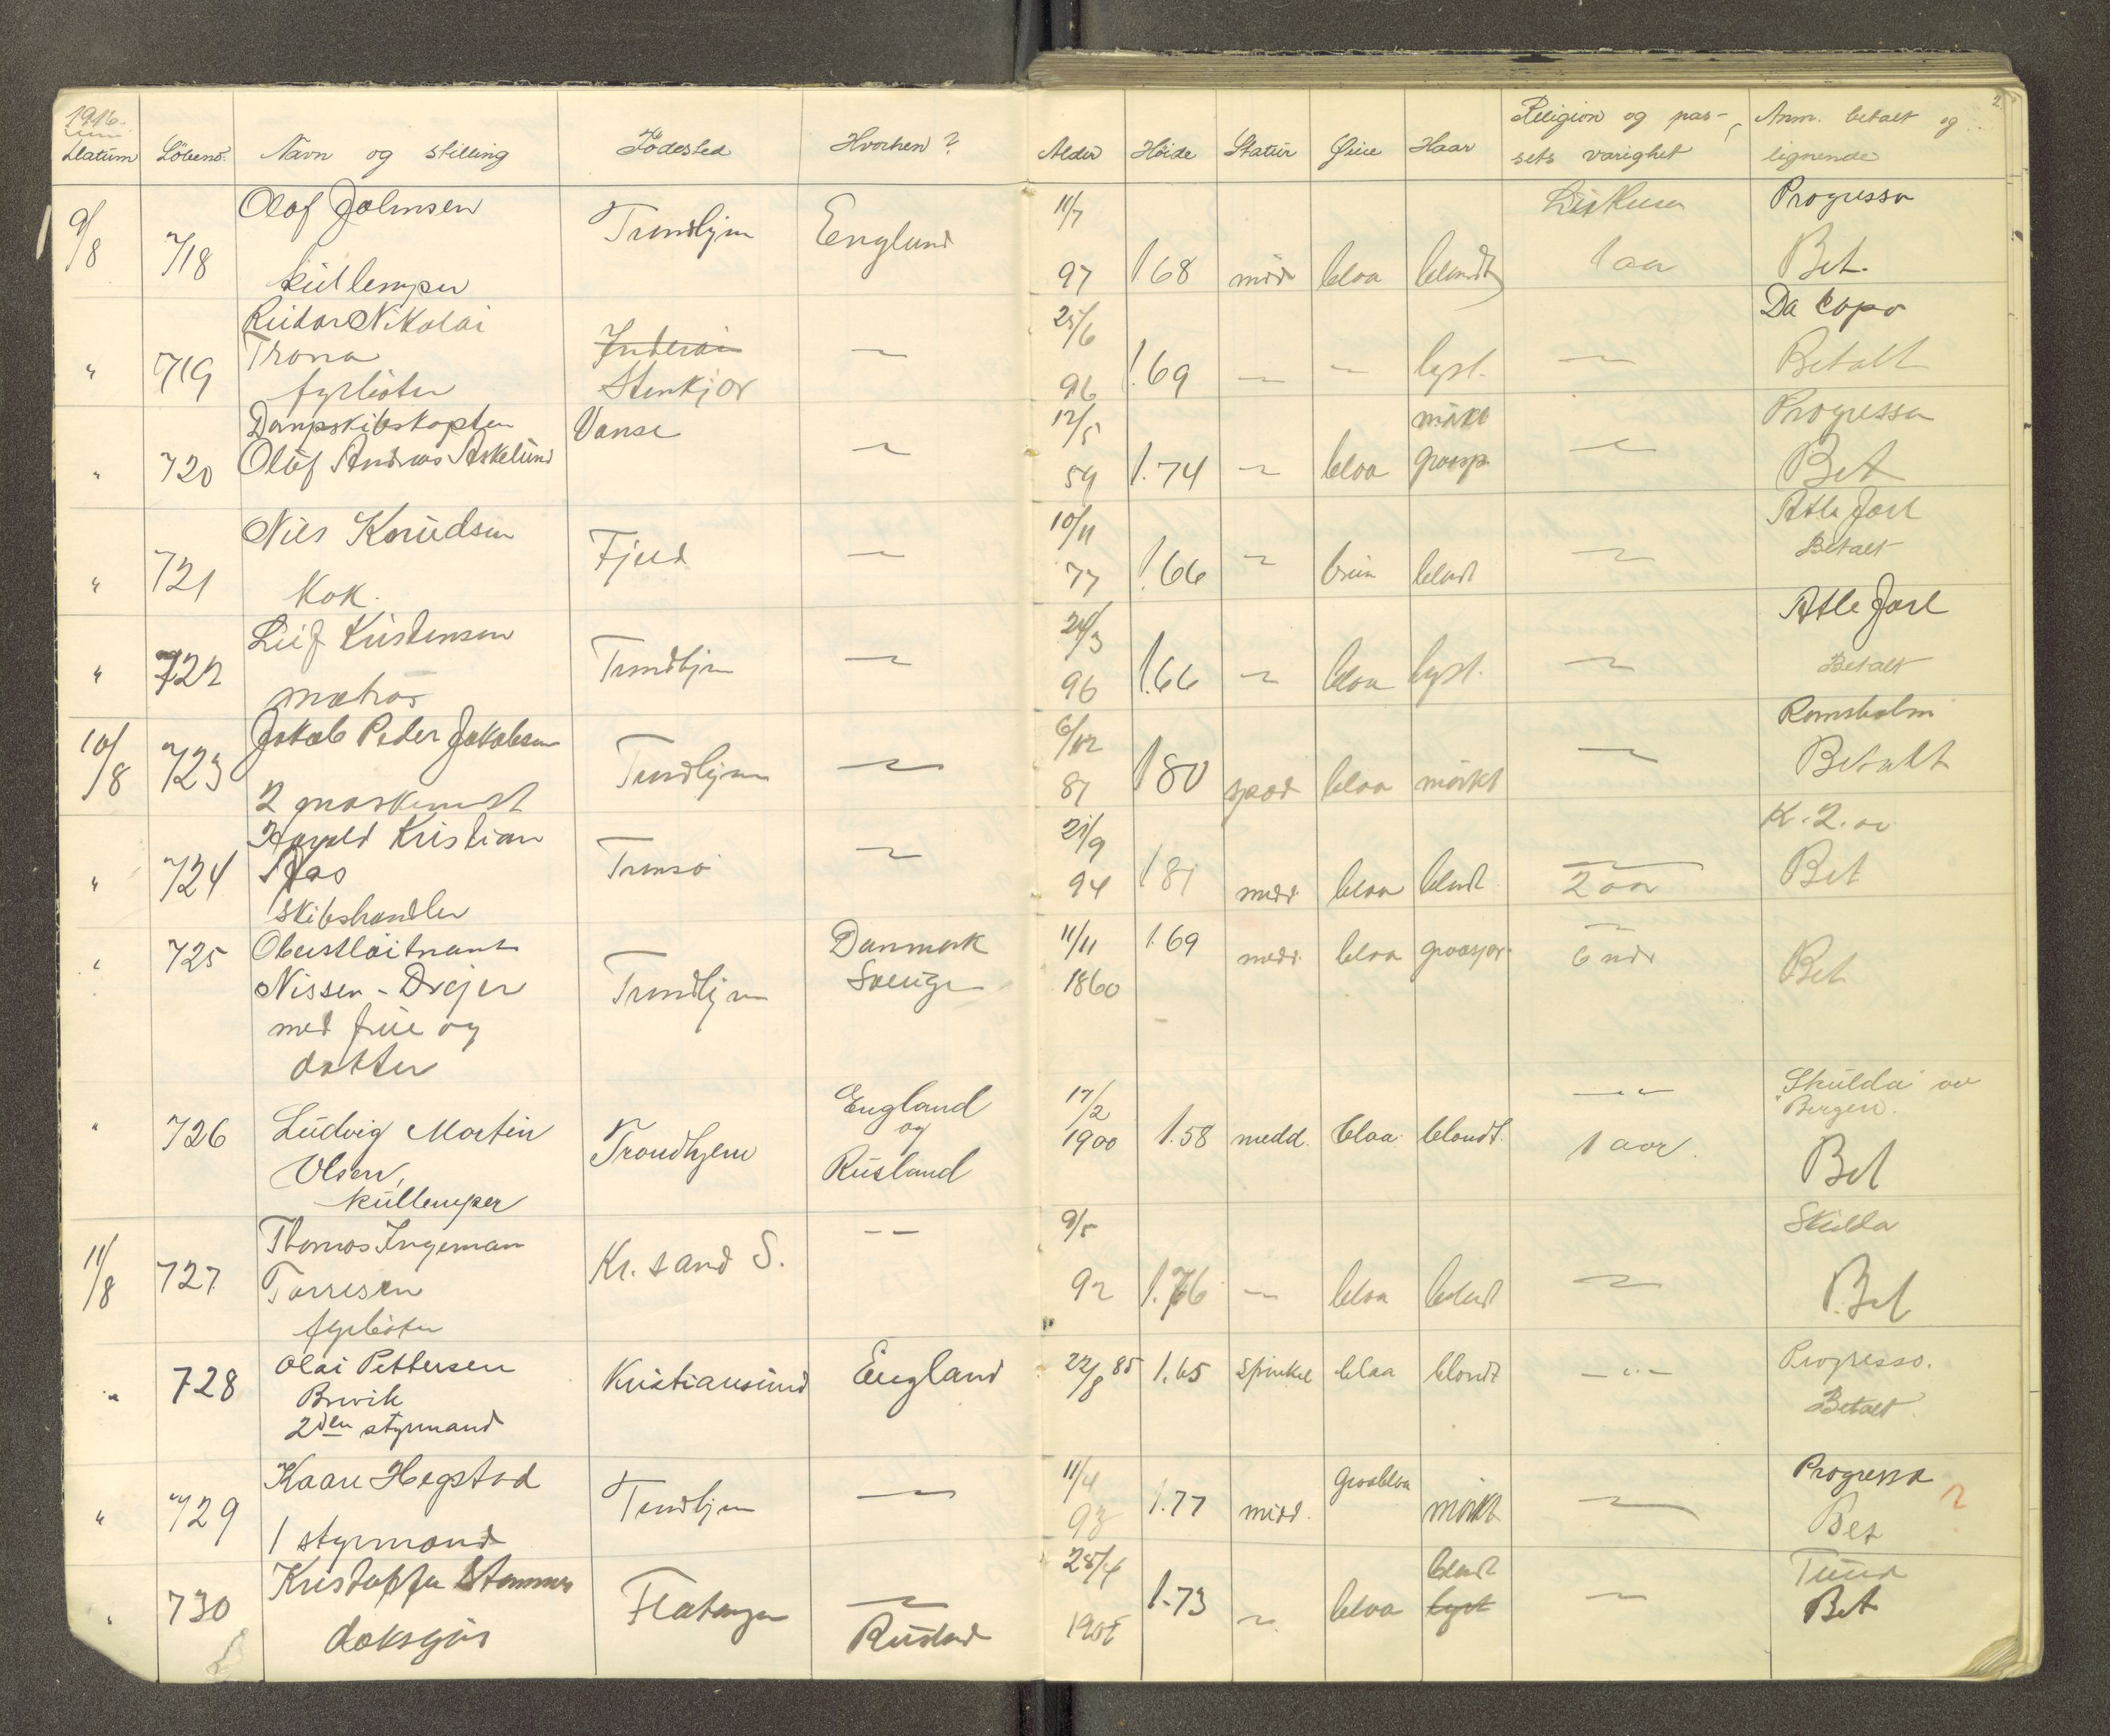 1916.
Datum Löbeno. Navn og stilling Födested Hvorhen? Alder Höide Statur Öine Haar Religion og pas-sets varighet Anm. betalt og lignende
2
9/8 718 Olaf Johnsen kullemper Trondhjem England 11/7 97 1.68 mid blaa blondt 1 aar Progresso Bet.
" 719 Reidar Nikolai Trana fyrböter ~~Inderöi~~ Stenkjær — 25/6 96 1.69 — — lyst. — Da Capo Betalt
" 720 Dampskibskaptein Olaf Andreas Askelund Vanse — 12/5 59 1.74 — blaa mörkt graasp. — Progresso Bet
" 721 Nils Knudsen Kok. Fjeld — 10/11 77 1.66 — brun blondt — Atle Jarl Betalt
" 722 Leif Kristensen matros Trondhjem — 24/3 96 1.66 — blaa lyst. — Atle Jarl Betalt
10/8 723 Jakob Peder Jakobsen 2 maskinist Trondhjem — 6/12 81 1.80 spæd blaa mörkt — Romsholm Betalt
" 724 Harald Kristian Aas skibshandler Tromsö — 21/9 94 1.81 medd. blaa blondt — 2 aar K. 2.00 Bet
" 725 Oberstlöitnant Nissen-Drejer med frue og datter Trondhjem Danmark Sverige 11/11 1860 1.69 medd. blaa graaspr. — 6 mdr Bet
" 726 Ludvig Martin Olsen, kullemper Trondhjem England og Rusland 17/2 1900 1.58 medd. blaa blondt. — " — 1 aar. Skulda av Bergen. Bet
11/8 727 Thomas Ingeman Torresen fyrböter Kr. sand S. — — 9/5 92 1.76 — blaa blondt — Skulda Bet
" 728 Olai Pettersen Brevik 2den styrmand Kristiansund England 22/8 85 1.65 spinkel blaa blondt — " — Progresso. Betalt
" 729 Kaare Hegstad 1 styrmand Trondhjem — 11/4 93 1.77 midd. graablaa mörkt — Progresso Bet 2
" 730 Kristoffer Stamnes daksgut Flatanger — Rusland 25/4 1901 1.73 — blaa blondt ~~lyst~~ — Bet